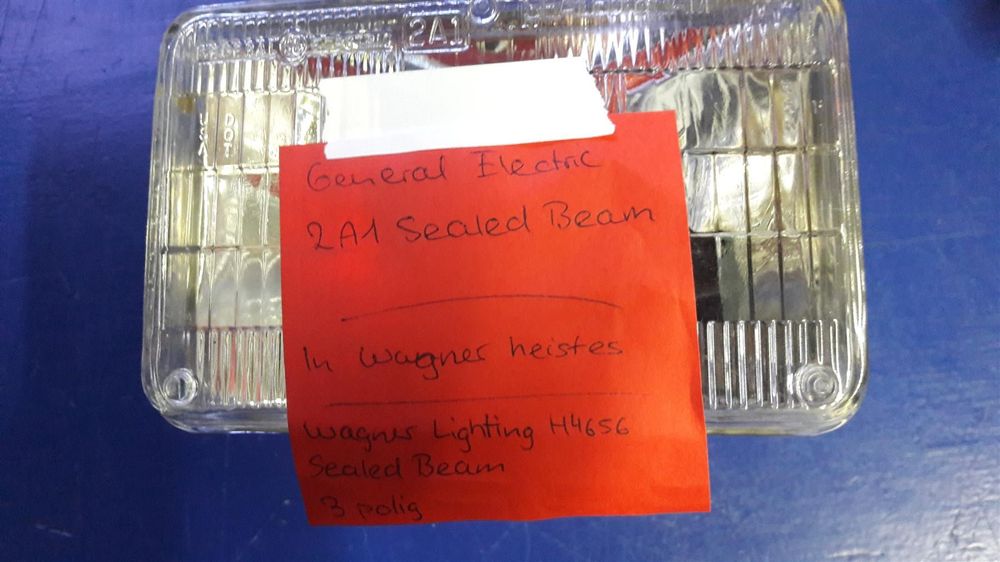 2A1
DOT
USA
General Electric
2A1 Sealed Beam
In Wagner heistes
Wagner Lighting H4656
Sealed Beam
3 polig